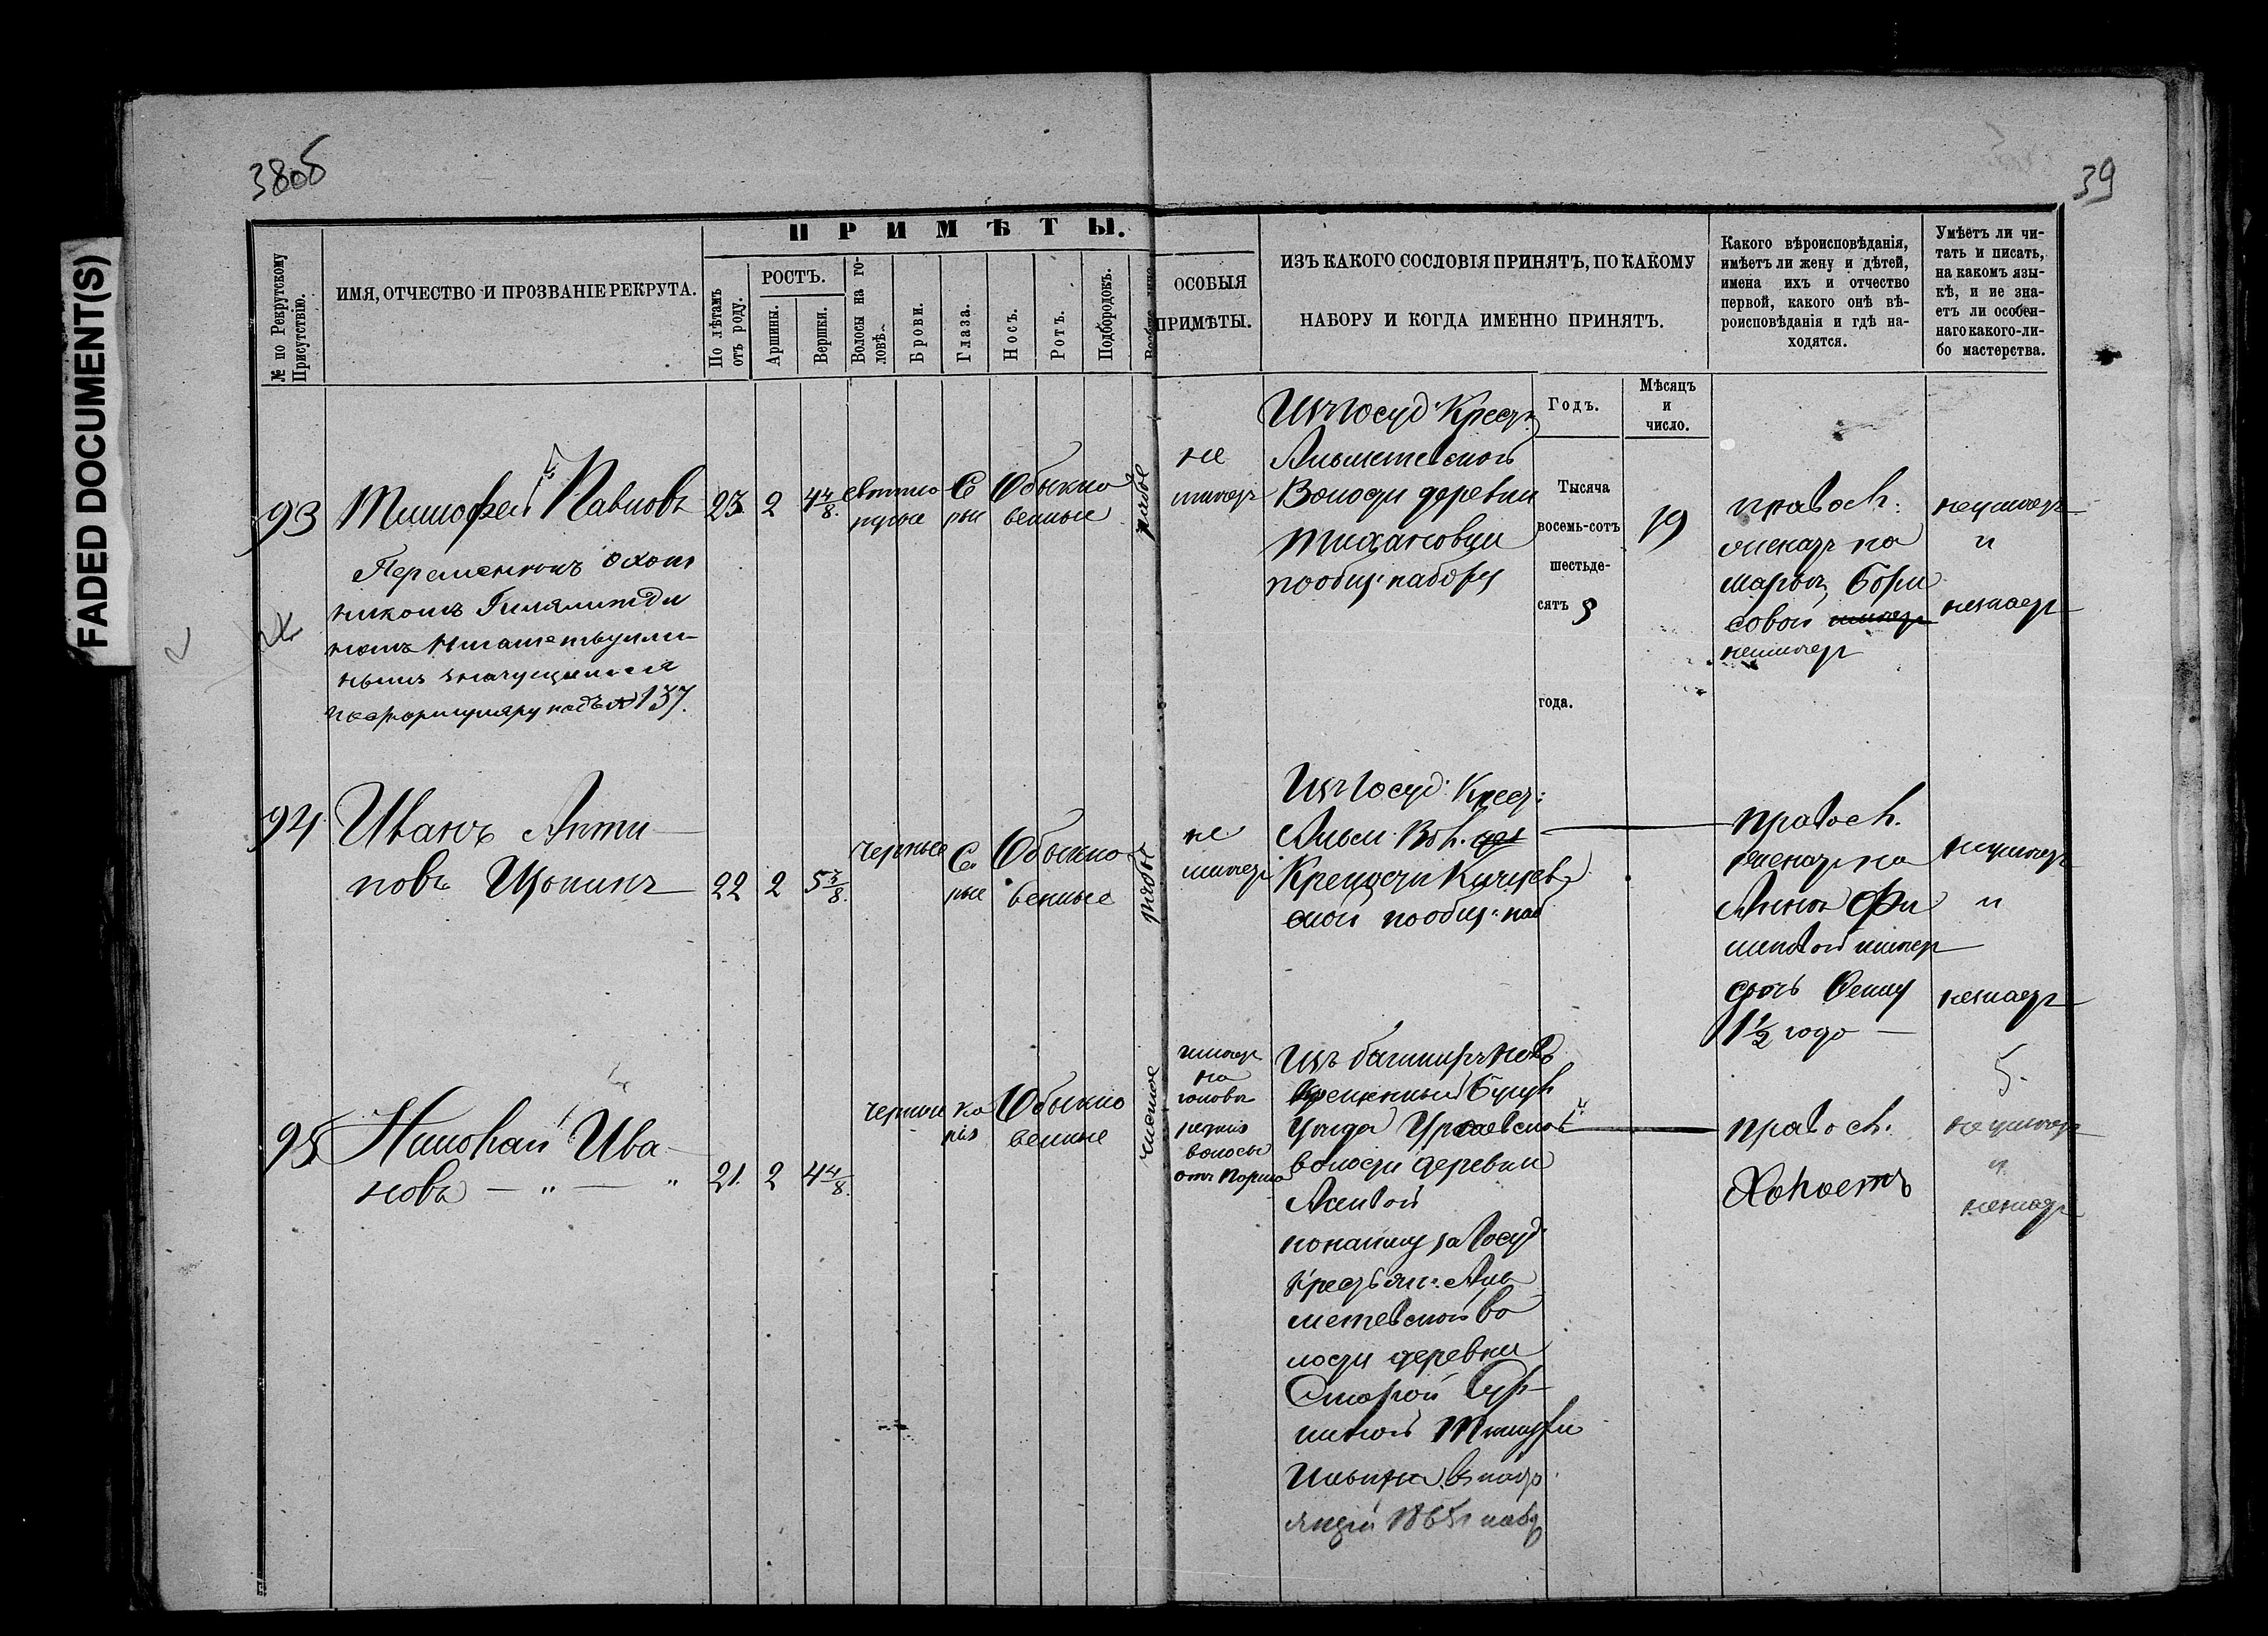 38об
39
FADED DOCUMENT(S)
ПРИМѢТЫ.
№ по Рекрутскому Присутствію.
ИМЯ, ОТЧЕСТВО И ПРОЗВАНІЕ РЕКРУТА.
По лѣтамъ отъ роду.
РОСТЪ.
Аршины.
Вершки.
Волосы на го-
ловѣ.
Брови.
Глаза.
Носъ.
Ротъ.
Подбородокъ.
ОСОБЫЯ
ПРИМѢТЫ.
ИЗЪ КАКОГО СОСЛОВІЯ ПРИНЯТЪ, ПО КАКОМУ
НАБОРУ И КОГДА ИМЕННО ПРИНЯТЪ.
Какого вѣроисповѣданія,
имѣетъ ли жену и дѣтей,
имена ихъ и отчество
первой, какого онѣ вѣ-
роисповѣданія и гдѣ на-
ходятся.
Умѣетъ ли чи-
тать и писать,
на какомъ язы-
кѣ, и не зна-
етъ ли особен-
наго какого-ли-
бо мастерства.
Годъ.
Мѣсяцъ
и
число.
93
Тимофей Павловъ
Перемененъ охот
никомъ
значущимся
по формуляру подъ № 137.
23
2
4 4/8
светло
русые
Се
рые
Обыкно
венные
рябое
не
имеетъ
Изъ Госуд. Крест.
Альметевской
Волости деревни
Тихановки
по общ. набору
Тысяча
восемь-сотъ
шестьде-
сятъ 5
года.
19
правосл.
женатъ на
Марьѣ Бори
совой имеетъ
неимеетъ
неумеетъ
и
незнаетъ
94
Иванъ Анти
повъ Щопинъ
22
2
5 3/8
черные
Се
рые
Обыкно
венные
чистое
не
имеетъ
Изъ Госуд. Крест.
Альм. Вол. дер
Крепости Кичуев
ской по общ. наб
правосл.
женатъ на
Аннѣ Фи
липовой имеетъ
дочь
1 1/2 года
неумеетъ
и
незнаетъ
95
Николай Ива
новъ — „ — „
21.
2
4 4/8
черные
ка
рiя
Обыкно
венные
чистое
имеетъ
на
головѣ
редкiя
волосы
Изъ башкиръ нов
крещенный Бугул
Уезда
волости деревни
по найму за Госуд
Крестьян. Аль
метевской во
лости деревни
Старой Сур
киной
Ильина въ
1865 г набо
правосл.
Холостъ
неумеетъ
и
незнаетъ